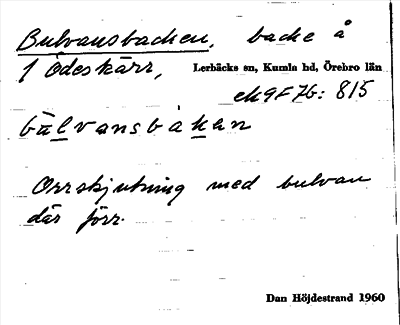 Bulvansbacken, backe å
1 Ödeskärr, Lerbäcks sn, Kumla hd, Örebro län
ek 9F 7b: 815
bu̇lvansbàken
Orrskjutning med bulvan
där förr.
Dan Höjdestrand 1960